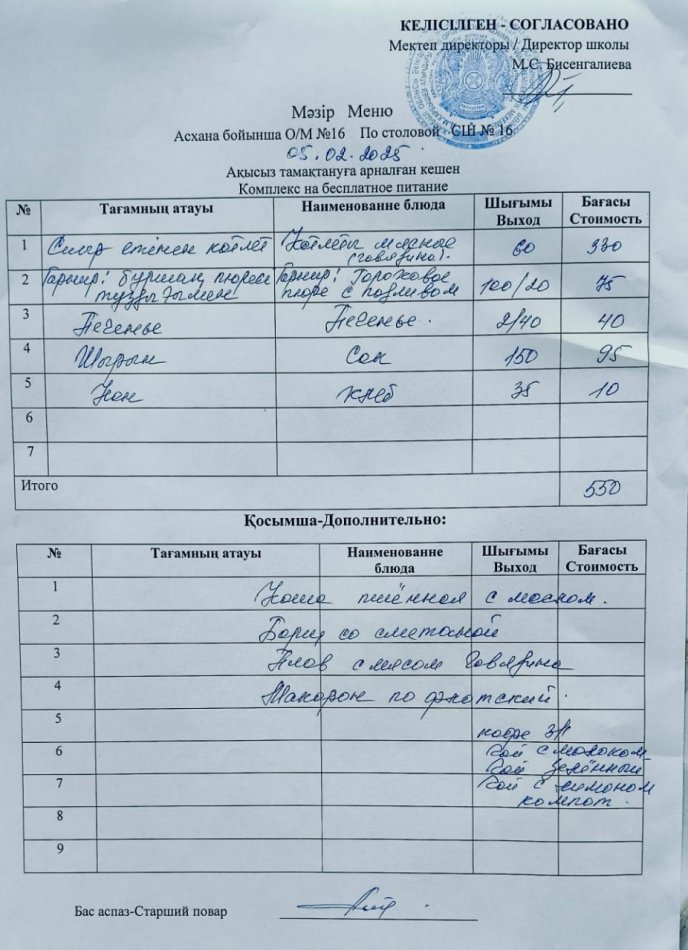 КЕЛІСІЛГЕН - СОГЛАСОВАНО
Мектеп директоры / Директор школы
М.С. Бисенгалиева
Мәзір Меню
Асхана бойынша О/М №16 По столовой СШ № 16
05.02.2025
Ақысыз тамақтануға арналған кешен
Комплекс на бесплатное питание
№ Тағамның атауы Наименованне блюда Шығымы Выход Бағасы Стоимость
1 Сиыр етінен котлет Котлеты мясные (говядина). 60 330
2 Гарнир: бұршақ пюресі тұздығымен Гарнир: Гороховое пюре с подливом 100/20 75
3 Печенье Печенье. 2/40 40
4 Шырын Сок 150 95
5 Нан хлеб 35 10
6
7
Итого 550
Қосымша-Дополнительно:
№ Тағамның атауы Наименованне блюда Шығымы Выход Бағасы Стоимость
1 Каша пшённая с маслом.
2 Борщ со сметаной
3 Плов с мясом Говядина
4 Макарон по флотский.
5 кофе 3/1
6 Чай с молоком
Чай Зелённый
7 Чай с лимоном
компот.
8
9
Бас аспаз-Старший повар